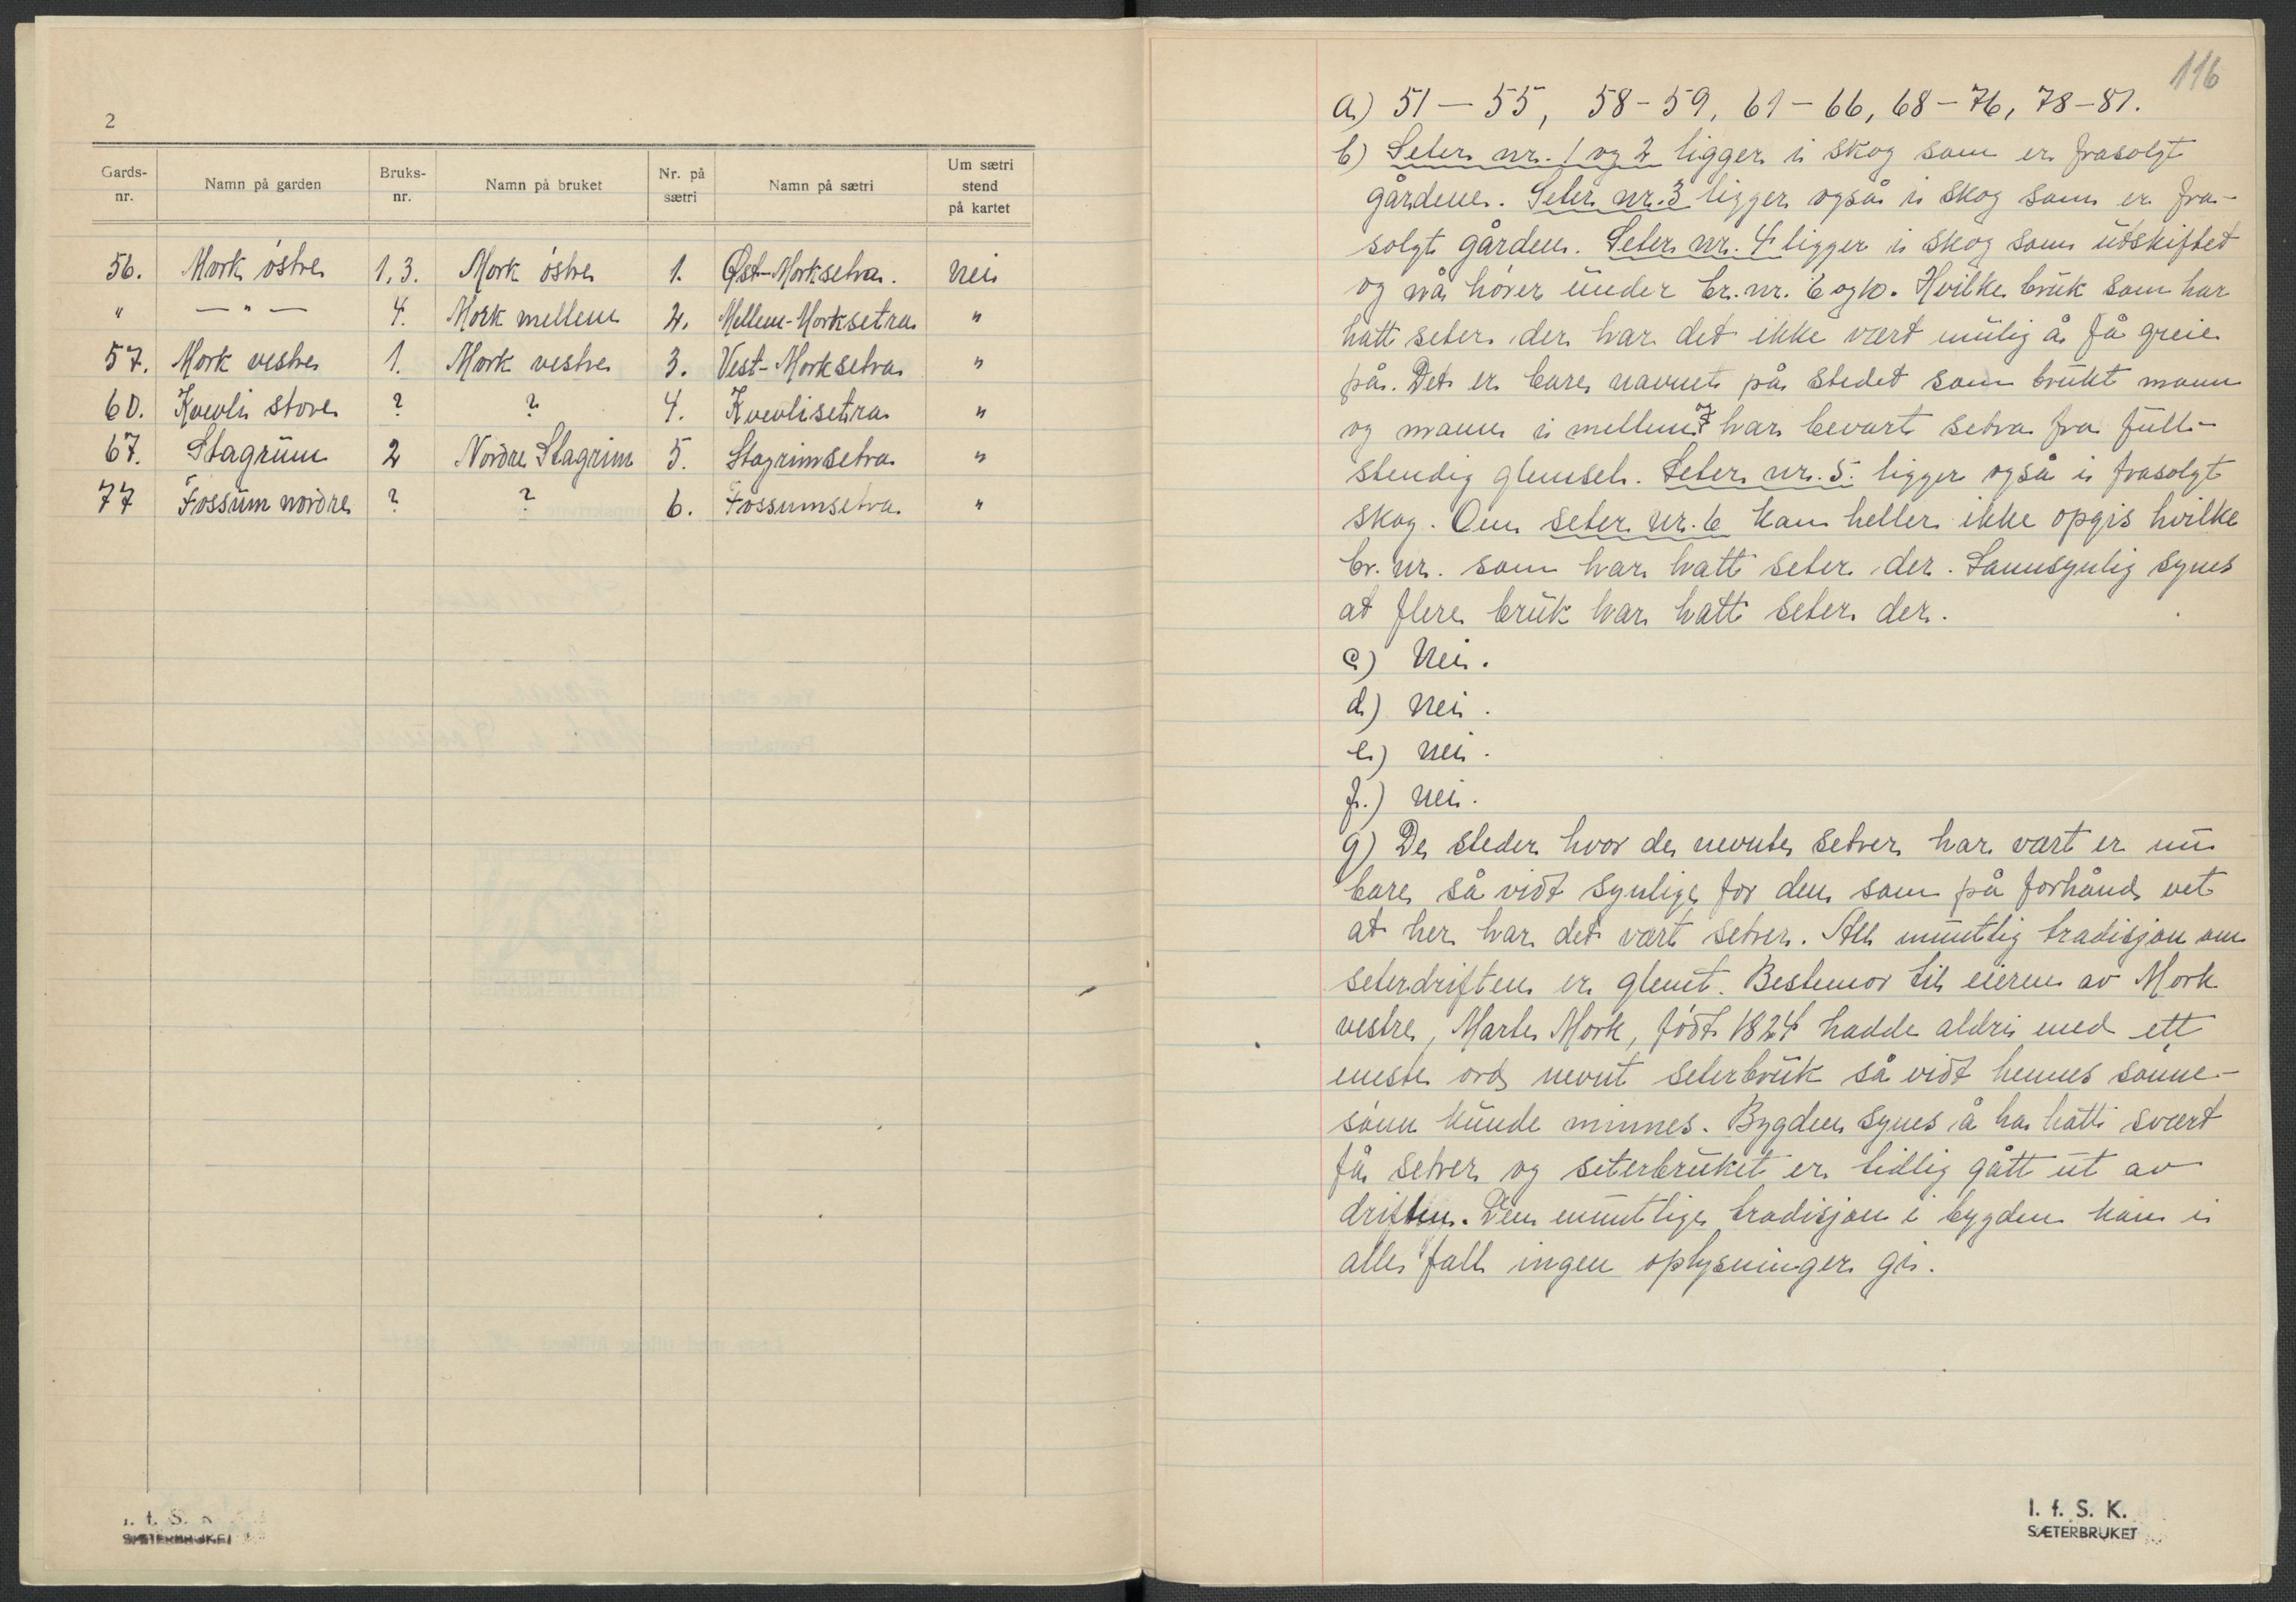 2
Gards-nr. Namn på garden Bruks-nr. Namn på bruket Nr. på sætri Namn på sætri Um sætri stend på kartet
56. Mork østre 1, 3. Mork østre 1. Øst-Morksetra. Nei
" — " — 4. Mork mellem 2. Mellem-Morksetra "
57. Mork vestre 1. Mork vestre 3. Vest-Morksetra "
60. Kvevli store ? ? 4. Kvevlisetra "
67. Stagrum 2 Nordre Stagrim 5. Stagrimsetra "
77 Fossum nordre ? ? 6. Fossumsetra "
I. f. S. K.
SÆTERBRUKET
116
a) 51 — 55, 58 - 59, 61 - 66, 68 - 76, 78 - 81.
b) Seter nr. 1 og 2 ligger i skog som er frasolgt
gårdene. Seter nr. 3 ligger også i skog som er fra-
solgt gården. Seter nr. 4 ligger i skog som utskiftet
og nå hører under br. nr. 6 og 10. Hvilke bruk som har
hatt seter der har det ikke vært mulig å få greie
på. Det er bare navnet på stedet som brukt mann
og mann i mellem og har bevart setra fra full-
stendig glemsel. Seter nr. 5. ligger også i frasolgt
skog. Om seter nr. 6 kan heller ikke opgis hvilke
br. nr. som har hatt seter der. Sannsynlig synes
at flere bruk har hatt seter der.
c) Nei.
d) Nei.
e) Nei.
f.) Nei.
g) De steder hvor de nevnte setrer har vært er nu
bare så vidt synlige for den som på forhånd vet
at her har det vært setrer. All muntlig tradisjon om
seterdriften er glemt. Bestemor til eieren av Mork
vestre, Marte Mork, født 1824 hadde aldri med ett
eneste ord nevnt seterbruk så vidt hennes sønne-
sønn kunde minnes. Bygden synes å ha hatt svært
få setrer og seterbruket er tidlig gått ut av
driften. Den muntlige tradisjon i bygden kan i
alle fall ingen oplysninger gi.
I. f. S. K.
SÆTERBRUKET